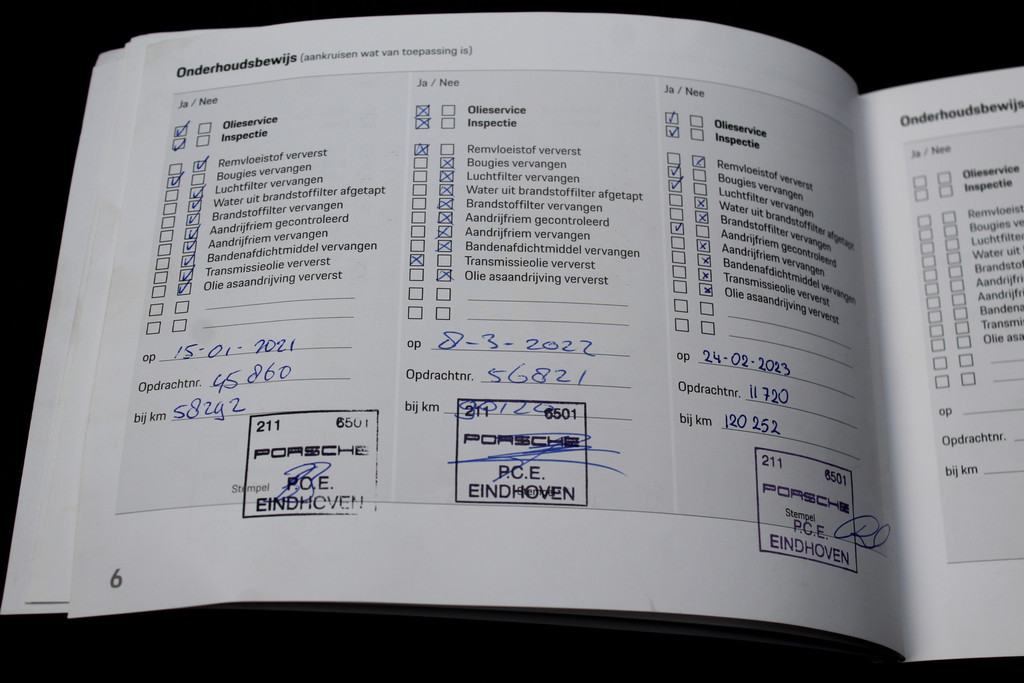 Onderhoudsbewijs (aankruisen wat van toepassing is)
Ja / Nee
Olieservice
Inspectie
Remvloeistof ververst
Bougies vervangen
Luchtfilter vervangen
Water uit brandstoffilter afgetapt
Brandstoffilter vervangen
Aandrijfriem gecontroleerd
Aandrijfriem vervangen
Bandenafdichtmiddel vervangen
Transmissieolie ververst
Olie asaandrijving ververst
op 15-01-2021
Opdrachtnr. 45860
bij km 58292
211 6501
PORSCHE
P.C.E.
Stempel
EINDHOVEN
Ja / Nee
Olieservice
Inspectie
Remvloeistof ververst
Bougies vervangen
Luchtfilter vervangen
Water uit brandstoffilter afgetapt
Brandstoffilter vervangen
Aandrijfriem gecontroleerd
Aandrijfriem vervangen
Bandenafdichtmiddel vervangen
Transmissieolie ververst
Olie asaandrijving ververst
op 8-3-2022
Opdrachtnr. 56821
bij km
211 6501
PORSCHE
P.C.E.
EINDHOVEN
Stempel
Ja / Nee
Olieservice
Inspectie
Remvloeistof ververst
Bougies vervangen
Luchtfilter vervangen
Water uit brandstoffilter afgetapt
Brandstoffilter vervangen
Aandrijfriem gecontroleerd
Aandrijfriem vervangen
Bandenafdichtmiddel vervangen
Transmissieolie ververst
Olie asaandrijving ververst
op 24-02-2023
Opdrachtnr. 11720
bij km 120 252
211 6501
PORSCHE
Stempel
P.C.E.
EINDHOVEN
6
Onderhoudsbewijs
Ja / Nee
Olieservice
Inspectie
Remvloeist
Bougies ve
Luchtfilte
Water uit
Brandsto
Aandrijfr
Aandrijfr
Bandena
Transmi
Olie asa
op
Opdrachtnr.
bij km